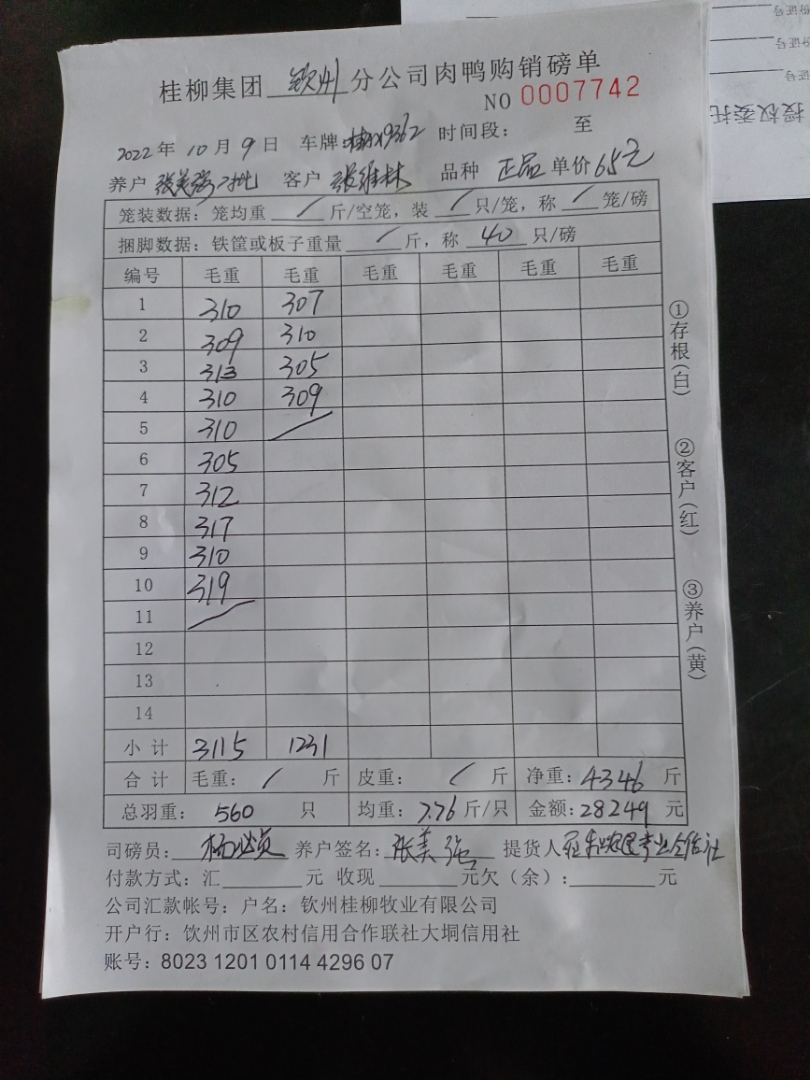 桂柳集团 钦州 分公司肉鸭购销磅单
NO 0007742
2022年10月9日 车牌: 9362 时间段: 至
养户 张美强 批 客户 张维林 品种 正品 单价 6.5元
笼装数据：笼均重 / 斤/空笼，装 / 只/笼，称 / 笼/磅
捆脚数据：铁筐或板子重量 / 斤，称 40 只/磅
编号 毛重 毛重 毛重 毛重 毛重 毛重
1 310 307
2 309 310
3 313 305
4 310 309
5 310 /
6 305
7 312
8 317
9 310
10 319
11 /
12
13
14
小计 3115 1231
合计 毛重： / 斤 皮重： / 斤 净重：4346 斤
总羽重： 560 只 均重：7.76 斤/只 金额：28249 元
司磅员： 养户签名：张美强 提货人
付款方式：汇 元 收现 元欠（余）： 元
公司汇款帐号：户名：钦州桂柳牧业有限公司
开户行：钦州市区农村信用合作联社大垌信用社
账号：8023 1201 0114 4296 07
①存根(白)
②客户(红)
③养户(黄)
授权委托
份证号
份证号
证号